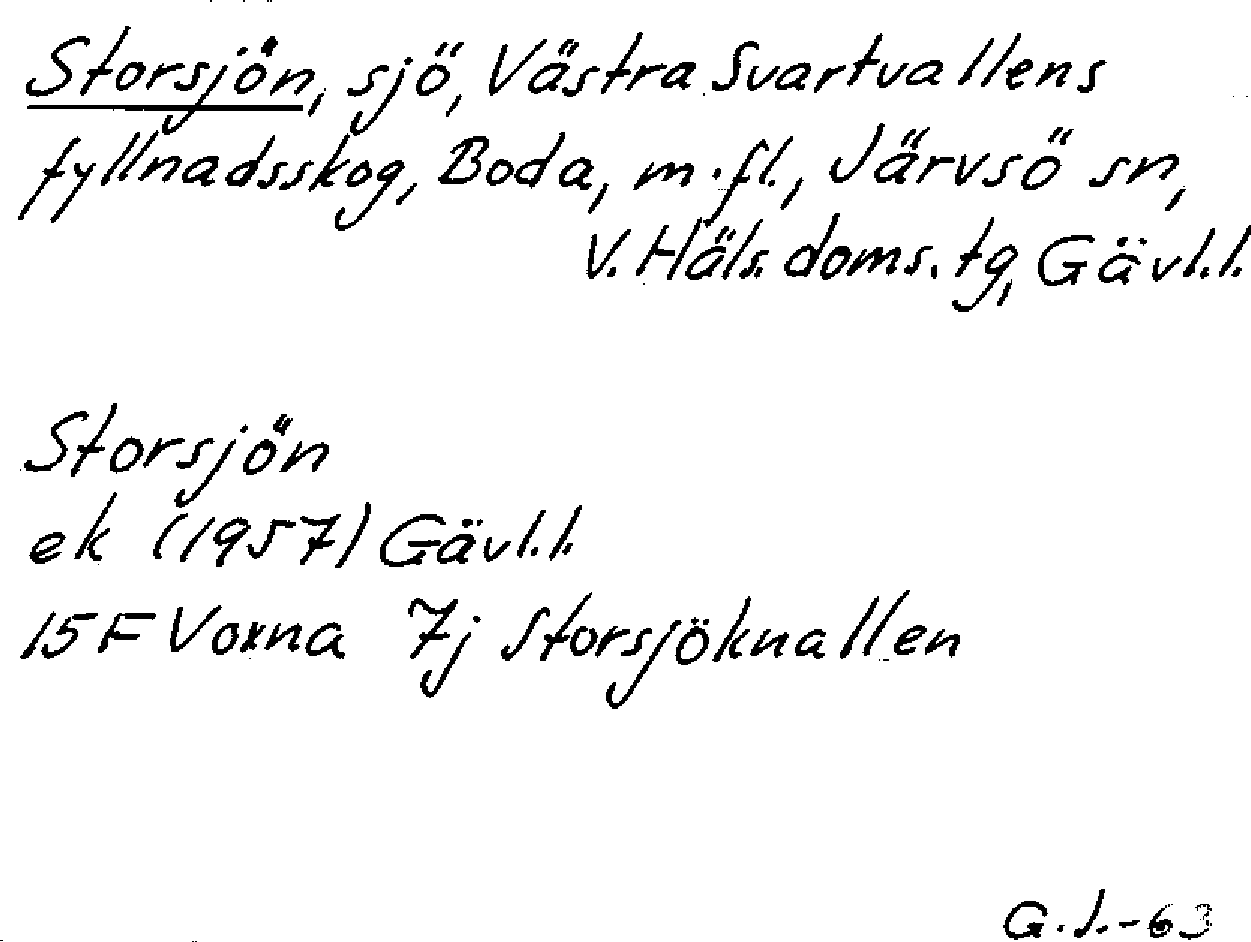 Storsjön, sjö, Västra Svartvallens
fyllnadsskog, Boda, m.fl., Järvsö sn,
V. Häls. doms. tg, Gävl.l.
Storsjön
ek (1957) Gävl.l.
15F Voxna 7j Storsjöknallen
G.J.-63